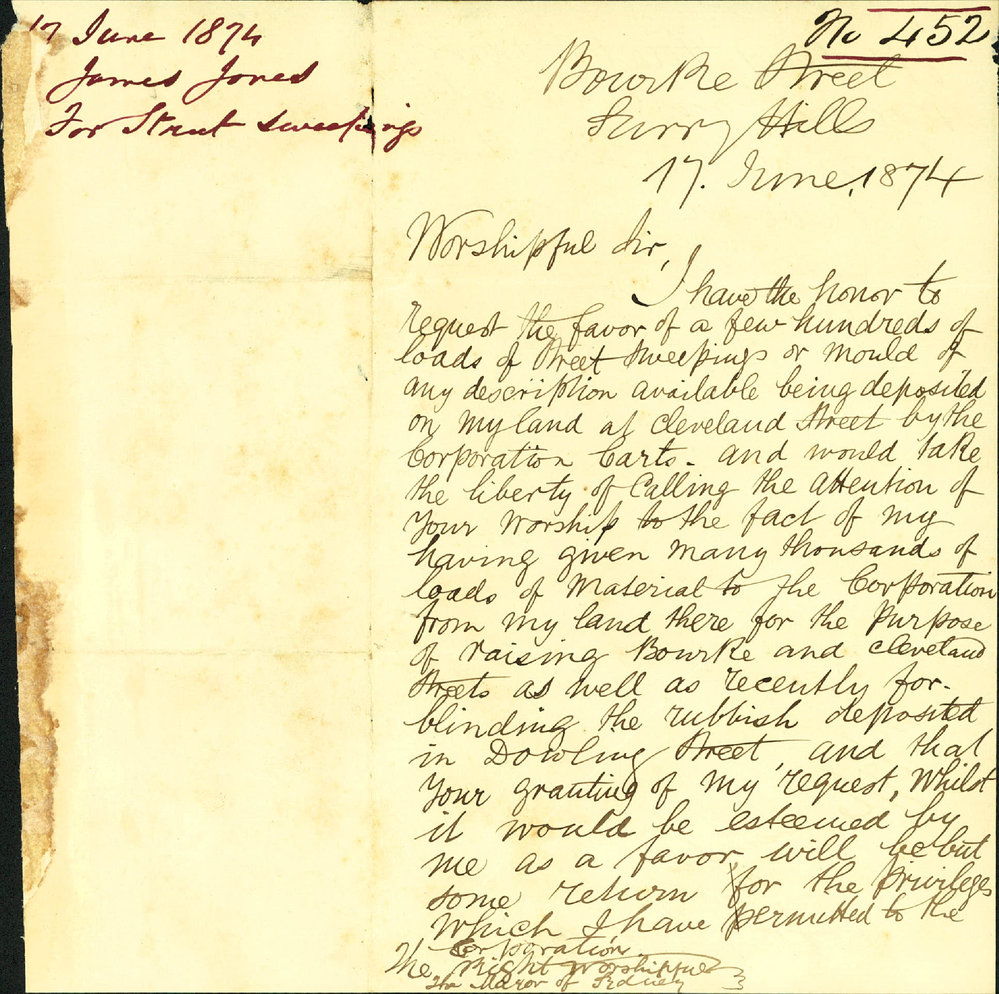 17 June 1874
James Jones
For Street sweepings
No 452
Bourke Street
Surry Hills
17. June, 1874
Worshipful Sir,
I have the honor to
request the favor of a few hundreds of
loads of Street Sweepings or mould of
any description available being deposited
on my land at Cleveland Street by the
Corporation Carts - and would take
the liberty of Calling the attention of
Your Worship to the fact of my
having given many thousands of
loads of Material to the Corporation
from my land there for the Purpose
of raising Bourke and Cleveland
Streets as well as recently for-
blinding the rubbish deposited
in Dowling Street, and that
Your granting of my request, Whilst
it would be esteemed by
me as a favor, will be but
some return for the Privileges
Which I have permitted to the
Corporation
The Right Worshipful
The Mayor of Sydney